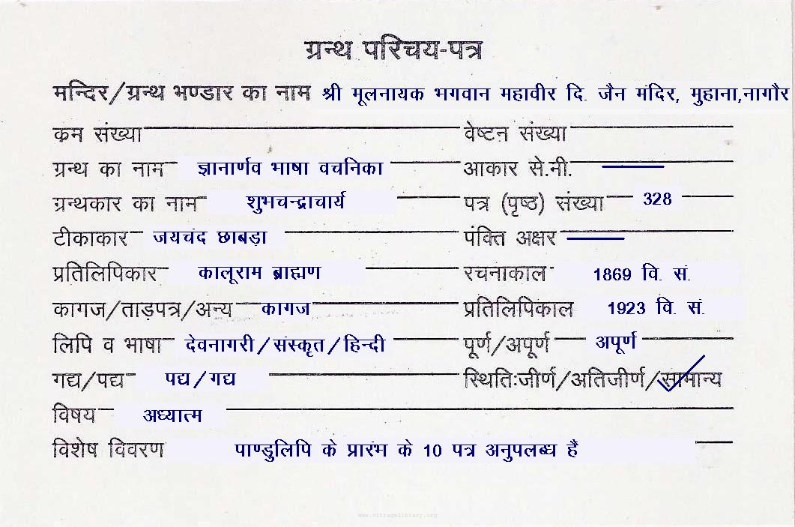 ग्रन्थ परिचय-पत्र
मन्दिर/ग्रन्थ भण्डार का नाम श्री मूलनायक भगवान महावीर दि. जैन मंदिर, मुहाना,नागौर
कम संख्या वेष्टन संख्या
ग्रन्थ का नाम ज्ञानार्णव भाषा वचनिका आकार से.मी.
ग्रन्थकार का नाम शुभचन्द्राचार्य पत्र (पृष्ठ) संख्या 328
टीकाकार जयचंद छाबड़ा पंक्ति अक्षर
प्रतिलिपिकार कालूराम ब्राह्मण रचनाकाल 1869 वि. सं.
कागज/ताड़पत्र/अन्य कागज प्रतिलिपिकाल 1923 वि. सं.
लिपि व भाषा देवनागरी/संस्कृत/हिन्दी पूर्ण/अपूर्ण अपूर्ण
गद्य/पद्य पद्य/गद्य स्थितिःजीर्ण/अतिजीर्ण/सामान्य
विषय अध्यात्म
विशेष विवरण पाण्डुलिपि के प्रारंभ के 10 पत्र अनुपलब्ध हैं